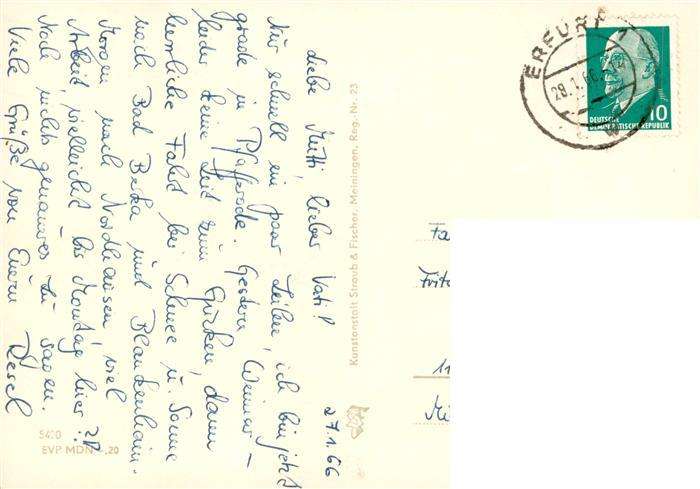 27.1.66
Liebe Mutti, lieber Vati!
Nur schnell ein paar Zeilen, ich bin jetzt
grade in Pfafferode. Gestern Weimar -
leider keine Zeit zum Gucken, dann
herrliche Fahrt bei Schnee u. Sonne
nach Bad Berka und Blankenhain.
Morgen nach Nordhausen, viel
Arbeit, vielleicht bis Montag hier?
Noch nichts genaueres zu sagen.
Viele Grüße von Euerm
Kunstanstalt Straub & Fischer, Meiningen, Reg.-Nr. 23
5420
EVP MDN -,20
ERFURT 1
28.1.66
10
DEUTSCHE
DEMOKRATISCHE REPUBLIK
Fa
Fritz
11
Mü